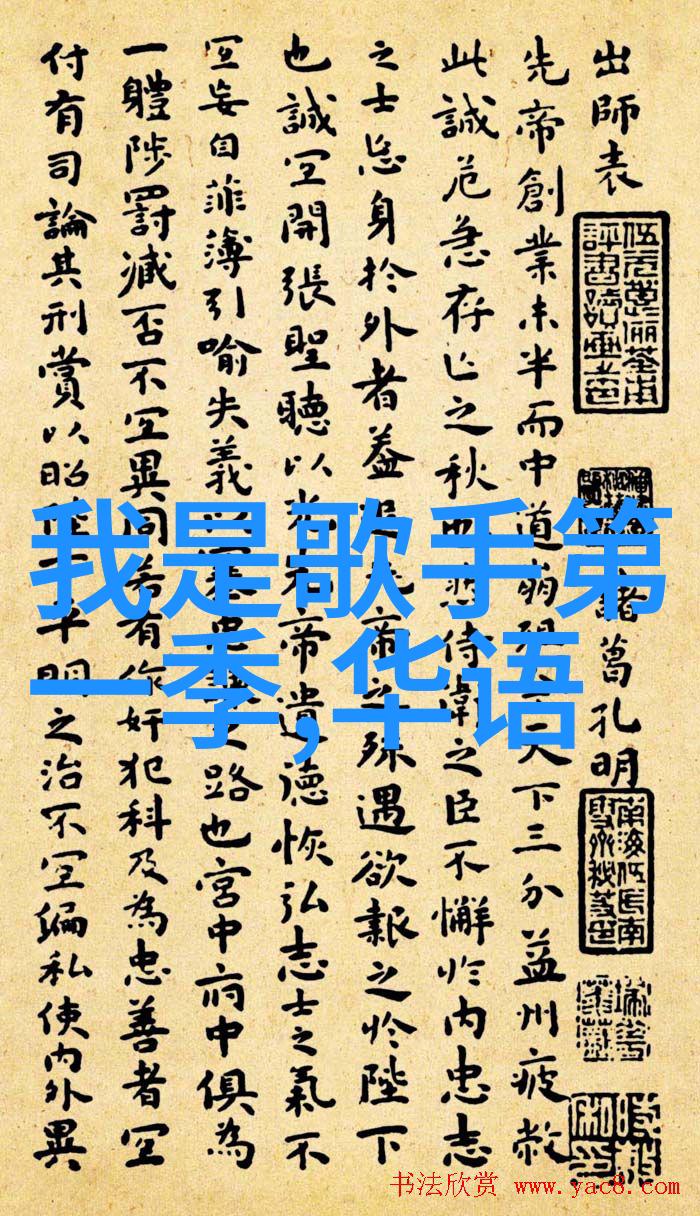 出師表
諸葛孔明
先帝創業未半而中道崩殂今天下三分益州疲敝
此誠危急存亡之秋也然侍衛之臣不懈於内忠志
之士忘身於外者蓋追先帝之殊遇欲報之於陛下
也誠宜開張聖聽以光先帝遺德恢弘志士之氣不
宜妄自菲薄引喻失義以塞忠諫之路也宮中府中俱為
一體陟罰減否不宜異同若有作奸犯科及為忠善者宜
付有司論其刑賞以昭陛下平明之治不宜偏私使内外異
我是歌手第
一季,华语
书法欣赏 www.yac8.com